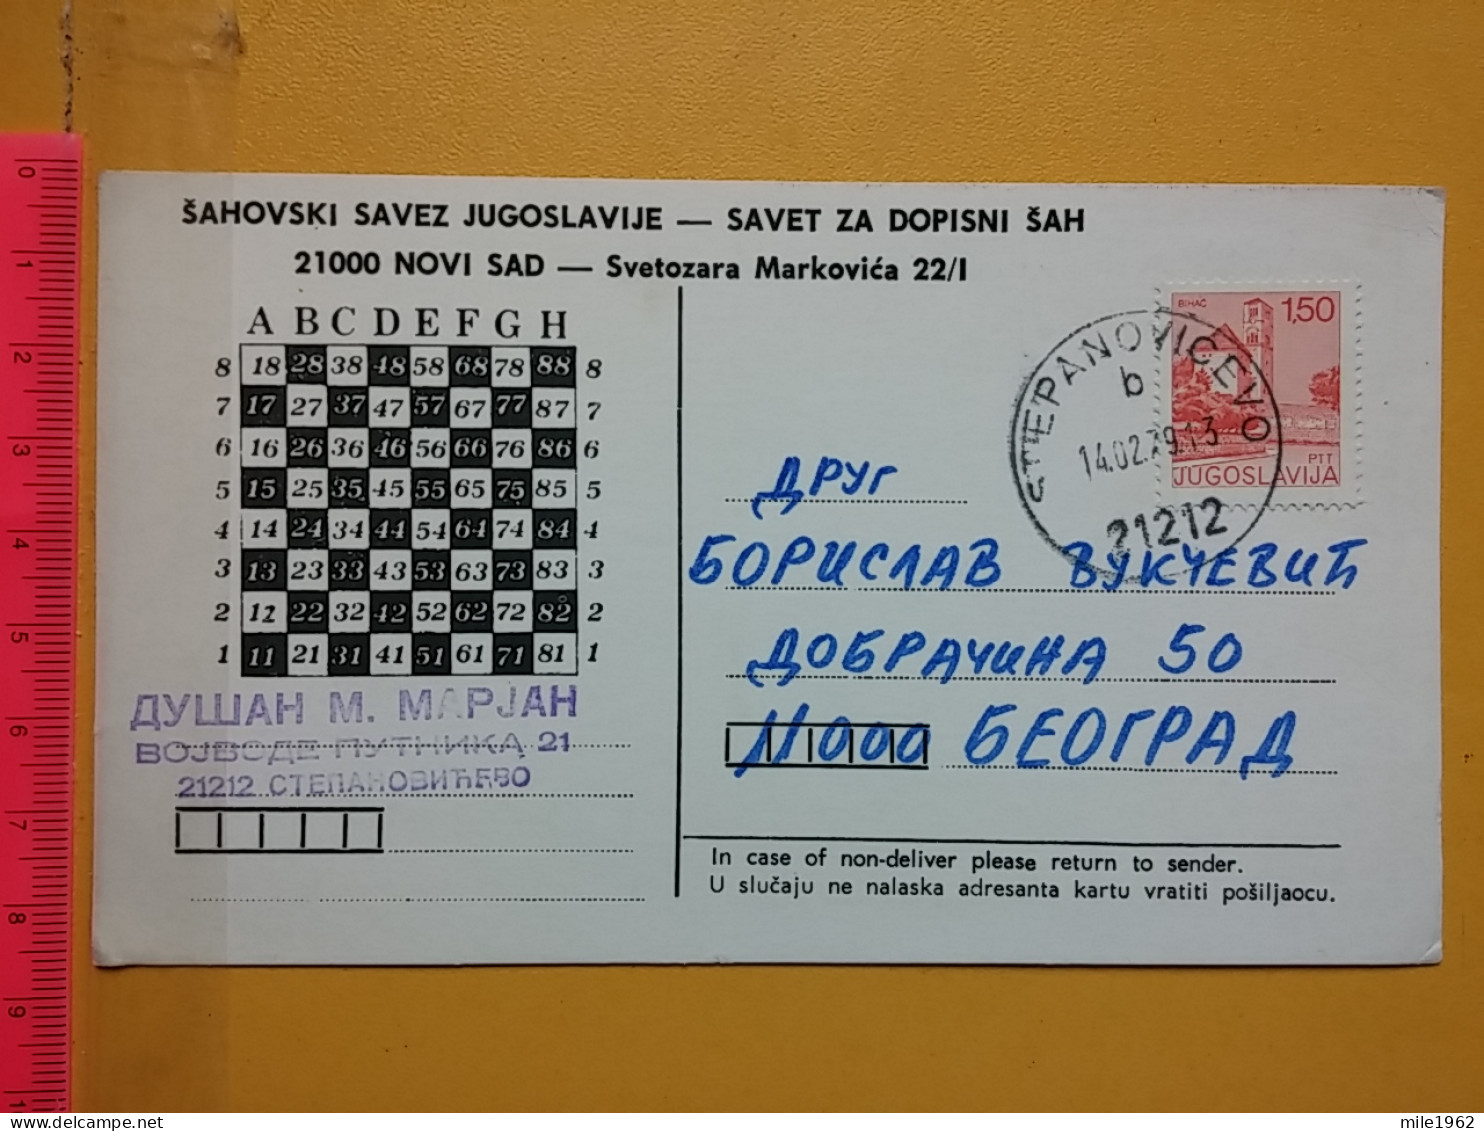 ŠAHOVSKI SAVEZ JUGOSLAVIJE — SAVET ZA DOPISNI ŠAH
21000 NOVI SAD — Svetozara Markovića 22/I
A B C D E F G H
8 18 28 38 48 58 68 78 88 8
7 17 27 37 47 57 67 77 87 7
6 16 26 36 46 56 66 76 86 6
5 15 25 35 45 55 65 75 85 5
4 14 24 34 44 54 64 74 84 4
3 13 23 33 43 53 63 73 83 3
2 12 22 32 42 52 62 72 82 2
1 11 21 31 41 51 61 71 81 1
ДУШАН М. МАРЈАН
ВОЈВОДЕ ПУТНИКА 21
21212 СТЕПАНОВИЋЕВО
BIHAĆ 1,50
PTT
JUGOSLAVIJA
STEPANOVIĆEVO
b
14.02.79.13
21212
ДРУГ
БОРИСЛАВ ВУКЧЕВИЋ
ДОБРАЧИНА 50
11000 БЕОГРАД
In case of non-deliver please return to sender.
U slučaju ne nalaska adresanta kartu vratiti pošiljaocu.
0
1
2
3
4
5
6
7
8
9
mile1962